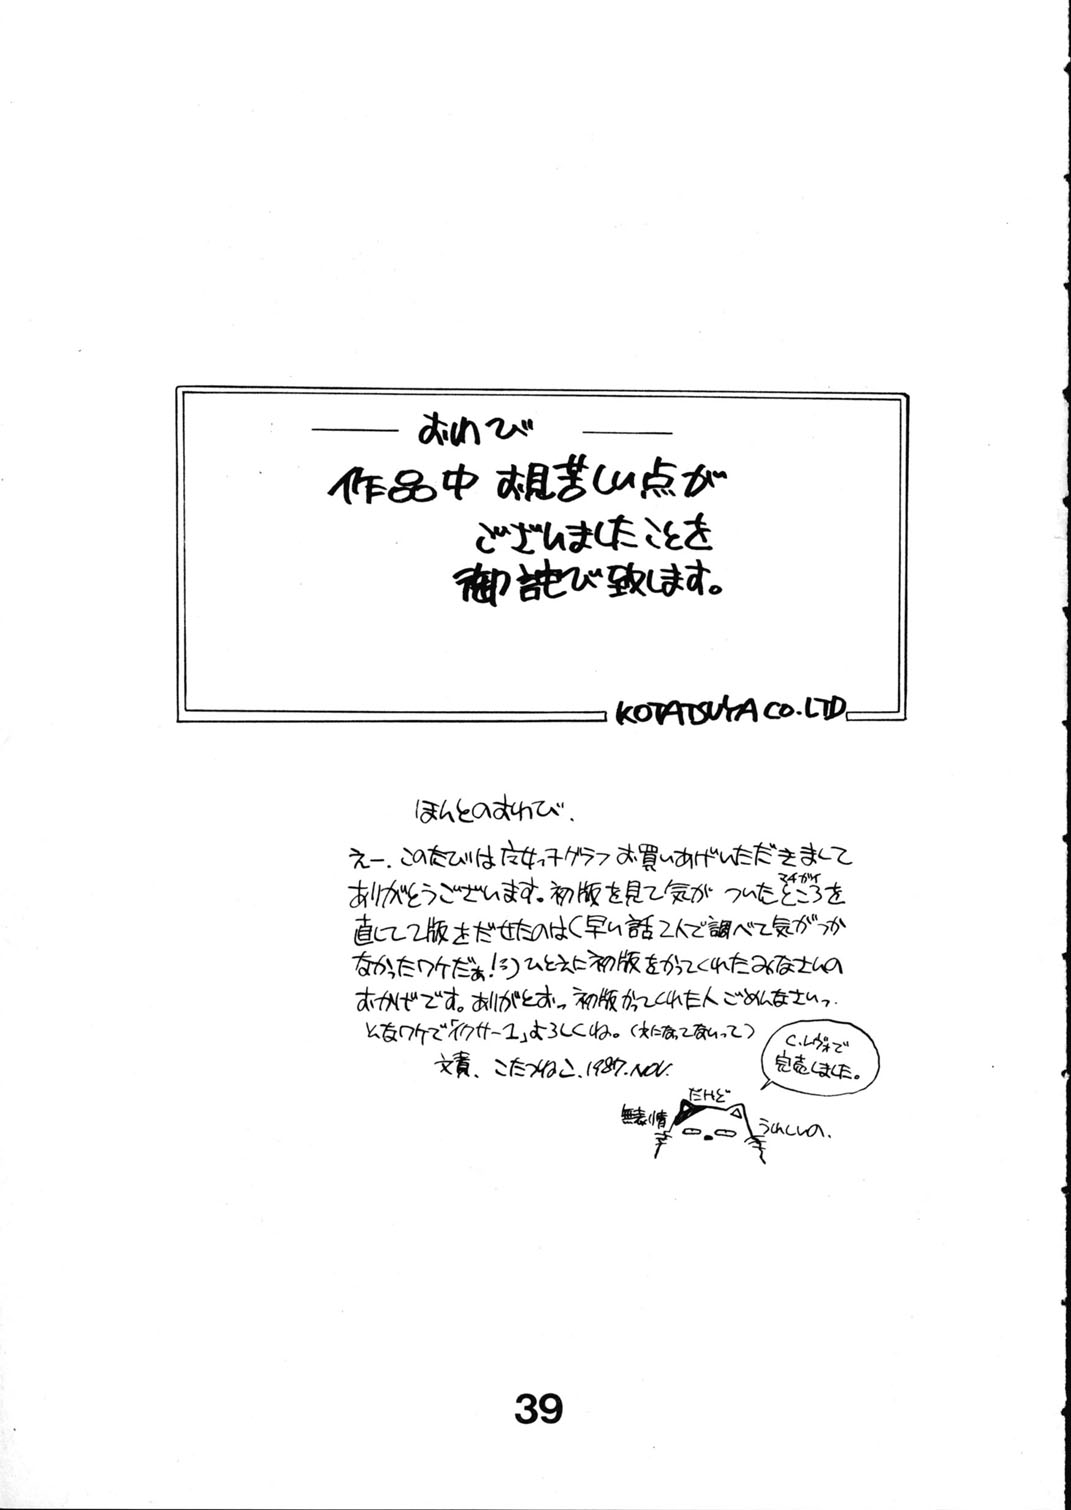 おわび
作品中 お見苦しい点が
ございましたことを
御詫び致します。
KOTATSUYA CO.LTD
ほんとのおわび.
えー、このたびは 女っ子グラフ お買いあげいただきまして
ありがとうございます。初版を見て気が ついたところを
マチガイ
直して2版をだせたのは(早い話2人で調べて気がつか
なかったワケだぁ!)ひとえに初版をかってくれたみなさいの
おかげです。ありがとおっ 初版かってくれた人 ごめんなさいっ.
そんなワケで「イクサー1」よろしくね。(えになってないって)
文責、こたつねこ、1987.NOV.
C.レヴォで
完売しました。
だけど
無表情
うれしいの.
39